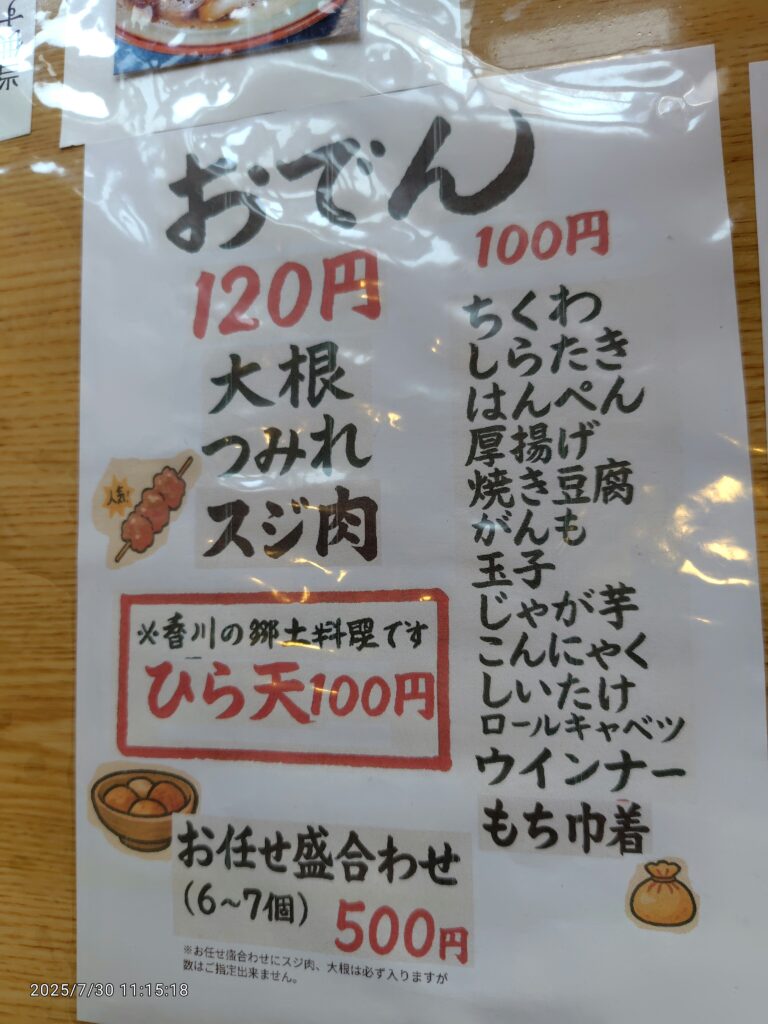 おでん
120円
大根
つみれ
スジ肉
人気!
※香川の郷土料理です
ひら天100円
お任せ盛合わせ
(6~7個) 500円
※お任せ盛合わせにスジ肉、大根は必ず入りますが
数はご指定出来ません。
100円
ちくわ
しらたき
はんぺん
厚揚げ
焼き豆腐
がんも
玉子
じゃが芋
こんにゃく
しいたけ
ロールキャベツ
ウインナー
もち巾着
2025/7/30 11:15:18